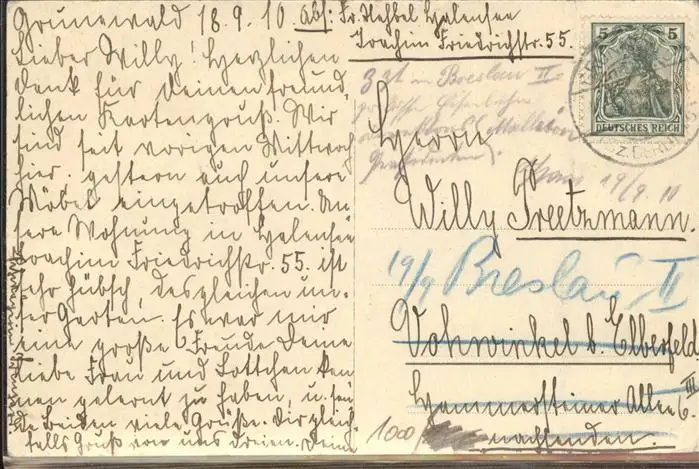 Grunewald 18.9.10 Abs: Fr. Halensee
Joachim Friedrichstr. 55.
Lieber Willy! Herzlichen
Dank für Deinen freund-
lichen Kartengruß. Wir
sind seit vorigen Mittwoch
hier, gestern auch unsere
Möbel eingetroffen. Un-
sere Wohnung in Halensee
Joachim Friedrichstr. 55. ist
sehr hübsch, desgleichen un-
ser Garten. Es war mir
eine große Freude Deine
liebe Frau und Lottchen ken
nen gelernt zu haben, u. sen
de Beiden viele Grüße. Dir gleich-
falls Gruß von uns Dreien. Deine
5 5
DEUTSCHES REICH
z Zt in Breslau II
19/9 10
Herrn
Willy Preetzmann.
19/9 Breslau II
Vohwinkel b. Elberfeld
Hammersteiner Allee 6 III
1000
nachsenden.